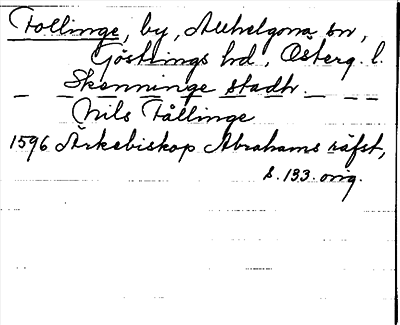 Follinge, by, Allhelgona sn,
Göstrings hd, Österg. l.
_ Skenninge stadh. _ _ _
Nils Fållinge
1596 Ärkebiskop Abrahams räfst,
s. 133. orig.